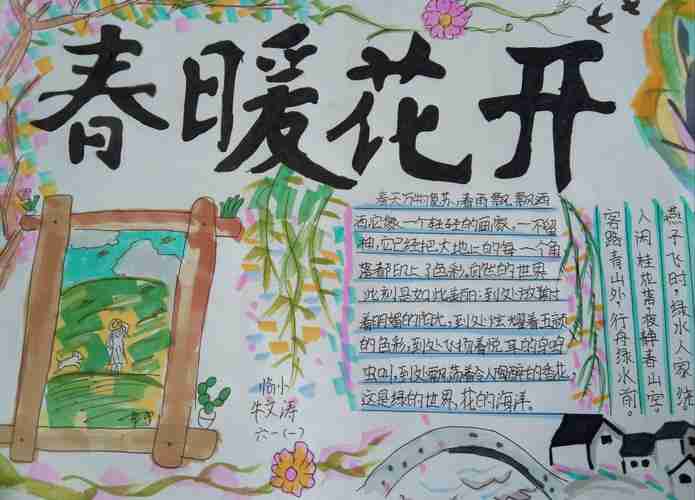 春暖花开
春天万物复苏,春雨飘飘洒
洒它像一个轻轻的画家,一不留
神,它已经把大地上的每一个角
落都印上了色彩,自然的世界
此刻是如此美丽:到处
着明媚的阳光,到处炫耀着五颜
的色彩,到处飞扬着悦耳的鸟鸣
虫叫,到处飘荡着令人陶醉的香花
这是绿的世界,花的海洋。
燕子飞时,绿水人家绕
人闲桂花落夜静春山空
客路青山外,行舟绿水前。
临小
文涛
六一(一)